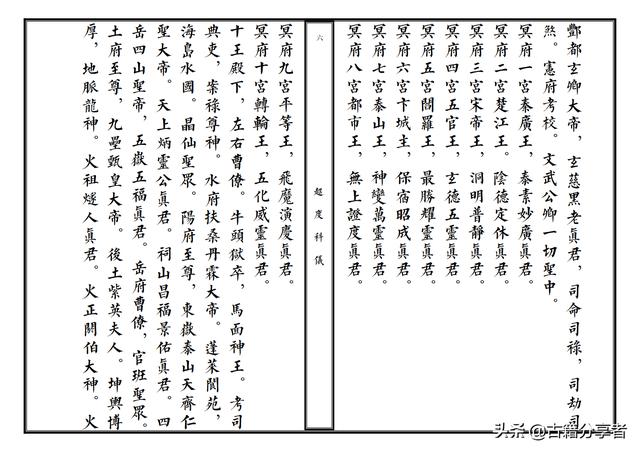 酆都玄卿大帝，玄慈黑老眞君，司命司祿，司劫司
煞。憲府考校。文武公卿一切聖中。
冥府一宮泰廣王，泰素妙廣眞君。
冥府二宮楚江王，陰德定休眞君。
冥府三宮宋帝王，洞明普靜眞君。
冥府四宮五官王，玄德五靈眞君。
冥府五宮閻羅王，最勝耀靈眞君。
冥府六宮卞城王，保宿昭成眞君。
冥府七宮泰山王，神變萬靈眞君。
冥府八宮都市王，無上證度眞君。
六
超度科儀
冥府九宮平等王，飛魔演慶眞君。
冥府十宮轉輪王，五化威靈眞君。
十王殿下，左右曹僚。牛頭獄卒，馬面神王。考司
典吏，崇祿尊神。水府扶桑丹霖大帝。蓬萊閬苑，
海島水國。晶仙聖眾。陽府至尊，東嶽泰山天齊仁
聖大帝。天上炳靈公眞君。祠山昌福景佑眞君。四
岳四山聖帝，五嶽五福眞君。岳府曹僚，官班聖眾。
土府至尊，九壘甎皇大帝。後土紫英夫人。坤輿博
厚，地脈龍神。火祖燧人眞君。火正閼伯大神。火
头条@古籍分享者